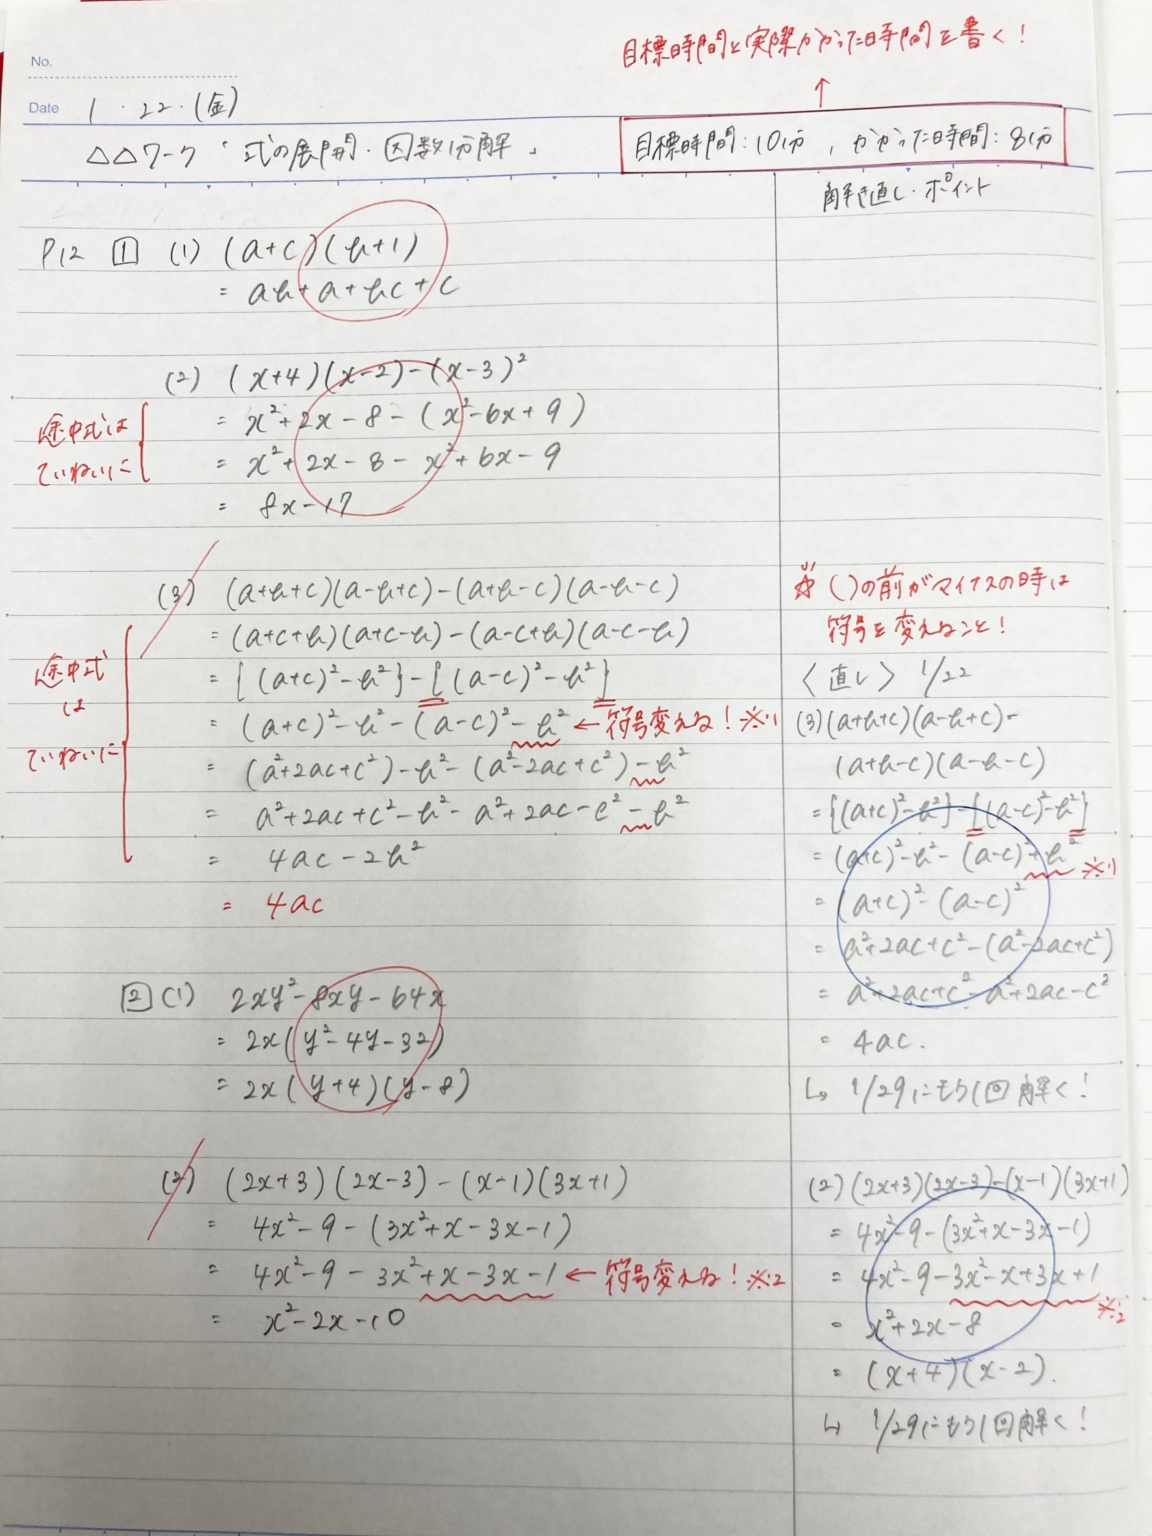 目標時間と実際かかった時間を書く!
No.
Date 1・22・(金)
△△ワーク「式の展開・因数分解」
目標時間:10分,かかった時間:8分
解き直し・ポイント
P12 1 (1) (a+c)(b+1)
= ab+a+bc+c
(2) (x+4)(x-2)-(x-3)²
= x²+2x-8-(x²-6x+9)
= x²+2x-8-x²+6x-9
= 8x-17
途中式は
ていねいに
(3) (a+b+c)(a-b+c)-(a+b-c)(a-b-c)
= (a+c+b)(a+c-b)-(a-c+b)(a-c-b)
= {(a+c)²-b²}-{(a-c)²-b²}
= (a+c)²-b²-(a-c)²-b² ←符号変える!※1
= (a²+2ac+c²)-b²-(a²-2ac+c²)-b²
= a²+2ac+c²-b²-a²+2ac-c²-b²
= 4ac-2b²
= 4ac
途中式
は
ていねいに
☆ ( )の前がマイナスの時は
符号を変えること!
〈直し〉 1/22
(3)(a+b+c)(a-b+c)-
(a+b-c)(a-b-c)
= {(a+c)²-b²}-{(a-c)²-b²}
= (a+c)²-b²-(a-c)²+b² ※1
= (a+c)²-(a-c)²
= a²+2ac+c²-(a²-2ac+c²)
= a²+2ac+c²-a²+2ac-c²
= 4ac.
↳ 1/29にもう1回解く!
2 (1) 2xy²-8xy-64x
= 2x(y²-4y-32)
= 2x(y+4)(y-8)
(2) (2x+3)(2x-3)-(x-1)(3x+1)
= 4x²-9-(3x²+x-3x-1)
= 4x²-9-3x²+x-3x-1 ←符号変える!※2
= x²-2x-10
(2)(2x+3)(2x-3)-(x-1)(3x+1)
= 4x²-9-(3x²+x-3x-1)
= 4x²-9-3x²-x+3x+1
※2
= x²+2x-8
= (x+4)(x-2).
↳ 1/29にもう1回解く!